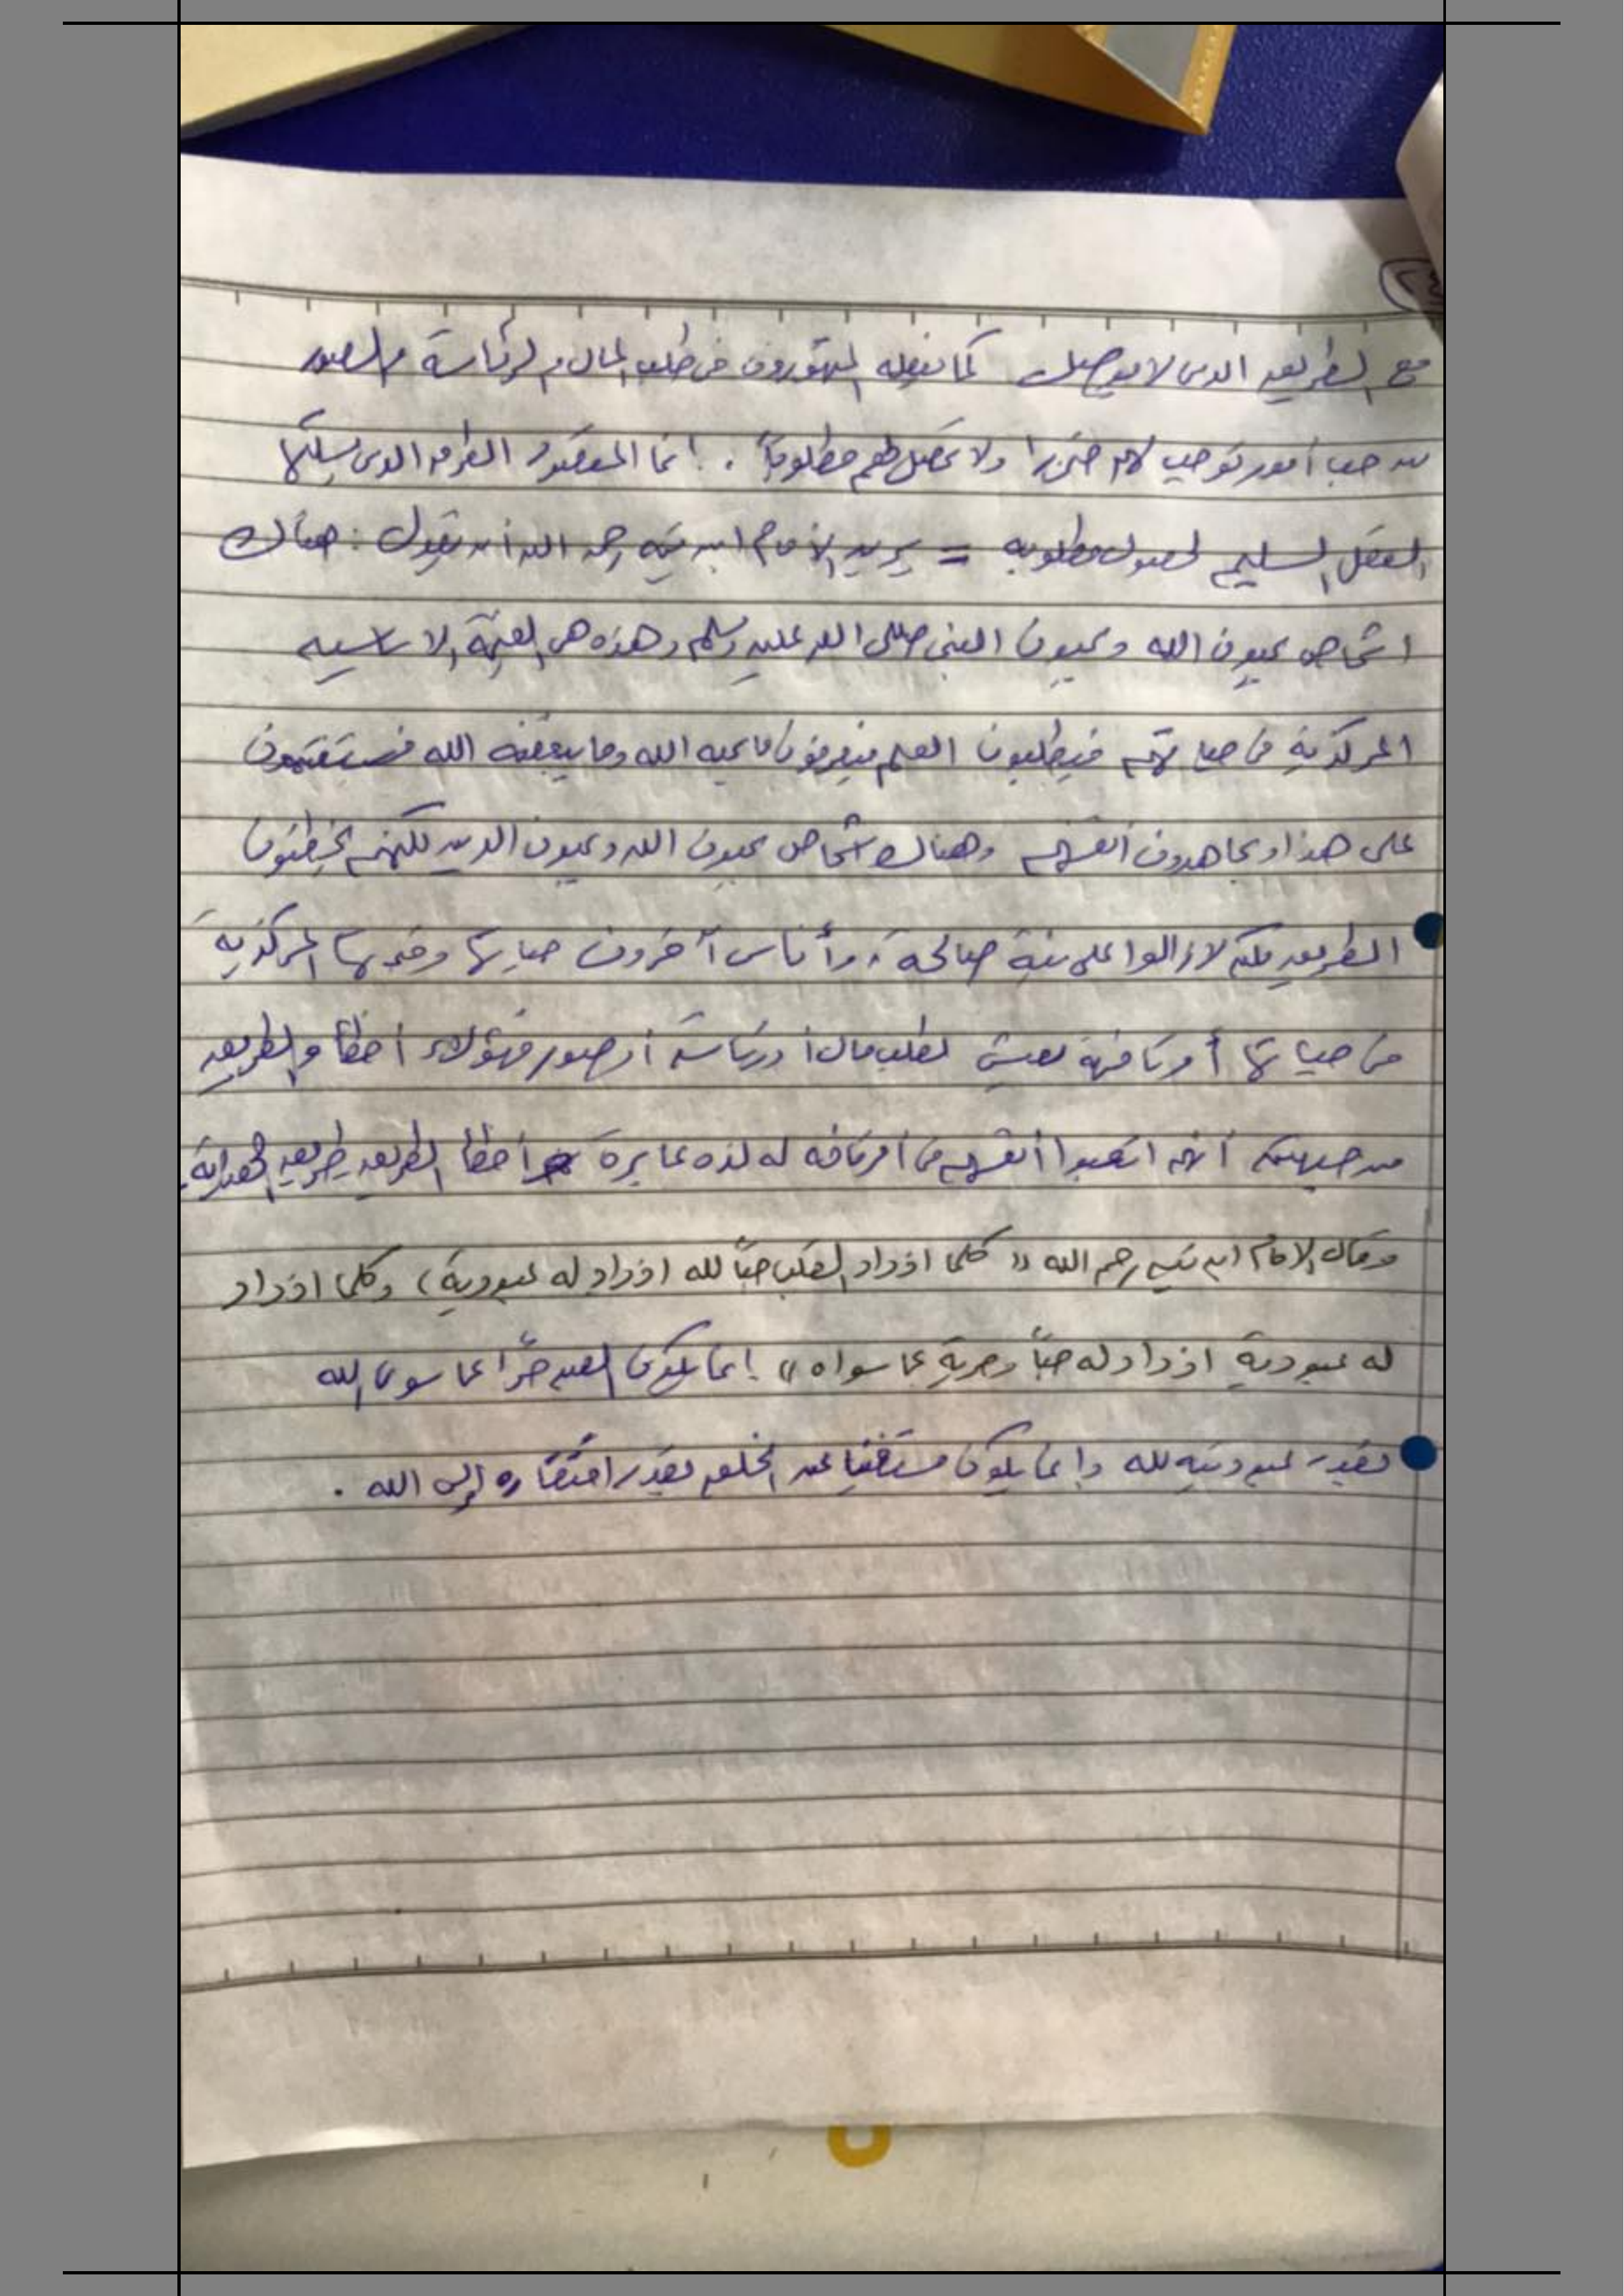 مع الطريق الذي لا يوصل كما يفعله المتهورون في طلب المال والرئاسة والصور
من حب أمور توجب لهم ضررا ولا تحصل لهم مطلوباً . إنما المقصود الطرق الذي يسلكها
العقل السليم لحصول مطلوبه = يريد الإمام ابن تيميه رحمه الله أن يقول : هناك
اشخاص يحبون الله ويحبون النبي صلى الله عليه وسلم وهذه هي القيمة الاساسيه
المركزية في حياتهم فيطلبون العلم فيعرفون ما يحبه الله وما يبغضه الله فيستقيمون
على هذا ويجاهدون أنفسهم وهناك اشخاص يحبون الله ويحبون الدين لكنهم يخطئون
الطريق لكنهم لازالوا على نية صالحة ، وأناس آخرون حياتها المركزية
في حياتها أمر تافهة تعيش لطلب مال أو رئاسة أو صور فهؤلاء أخطأوا الطريق
من جهتين أنهم اتعبوا أنفسهم في أمر تافه له لذه عابرة أخطأ الطريق طريق الهداية .
وقال الإمام ابن تيميه رحمه الله " كلما ازداد القلب حباً لله ازداد له عبودية ) وكلما ازداد
له عبودية ازداد له حباً وحرية عما سواه " إنما يكون العبد حراً عما سوى الله
بقدر عبوديته لله وإنما يكون مستغنيا عن الخلق بقدر افتقاره إلى الله .